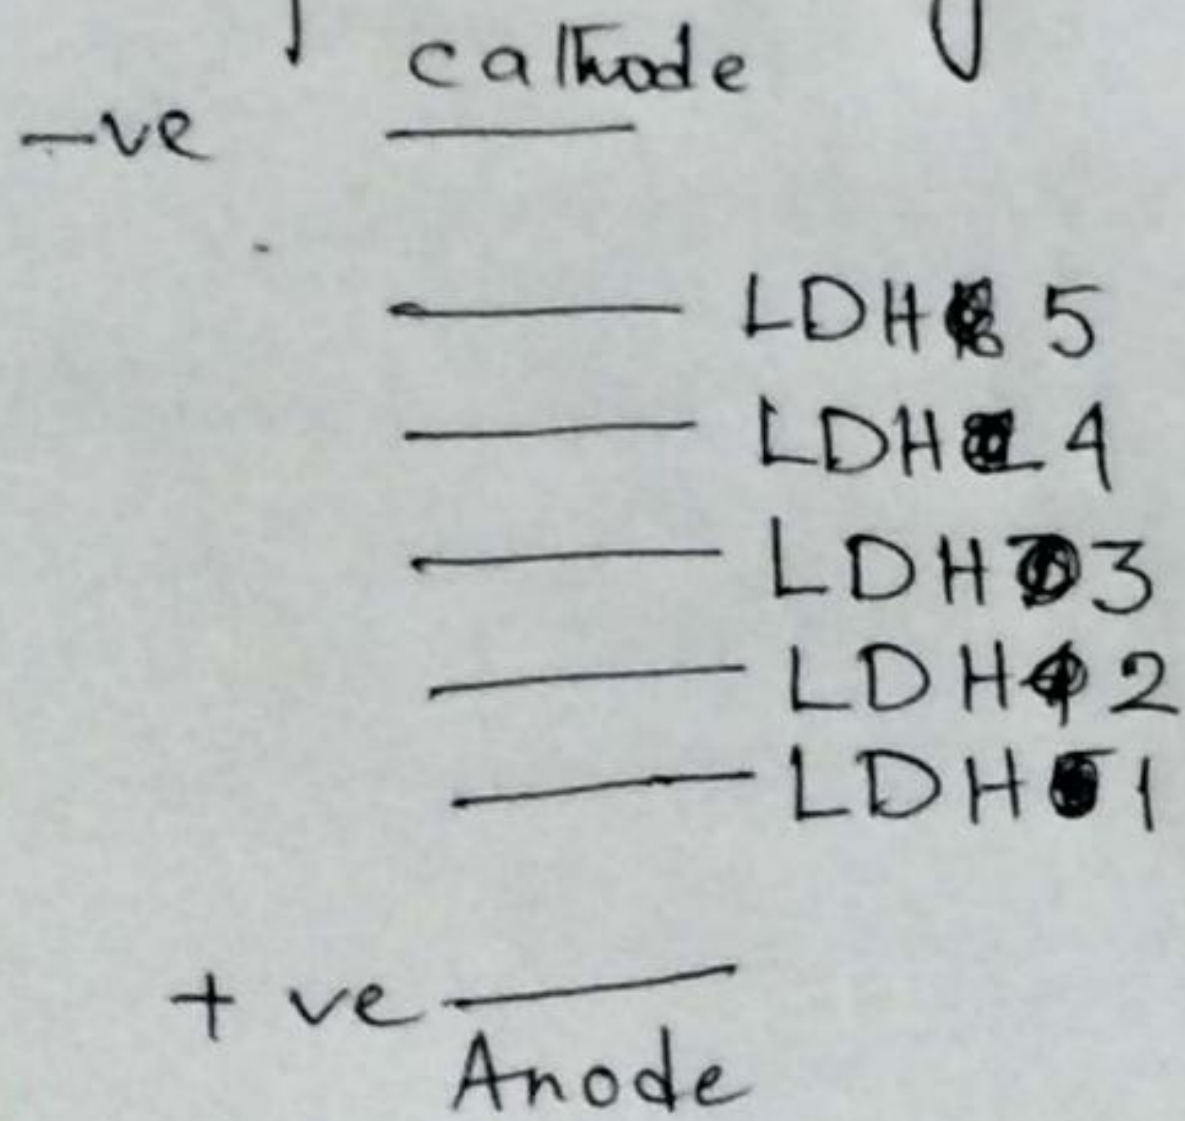 cathode
-ve
LDH 5
LDH 4
LDH 3
LDH 2
LDH 1
+ ve
Anode